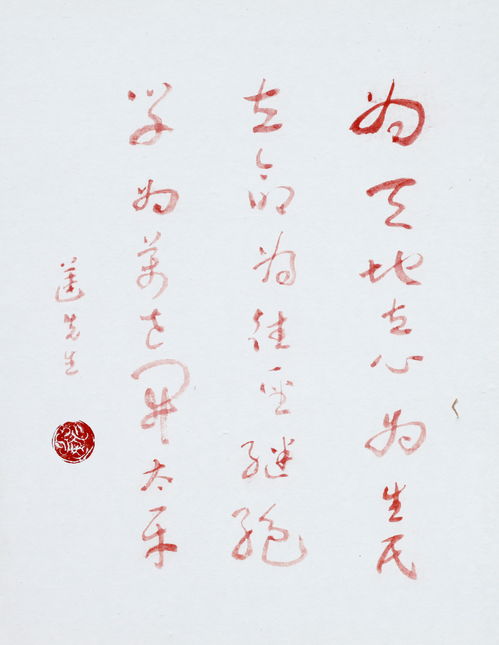 为天地立心为生民
立命为往圣继绝
学为萬世開太平
莲先生